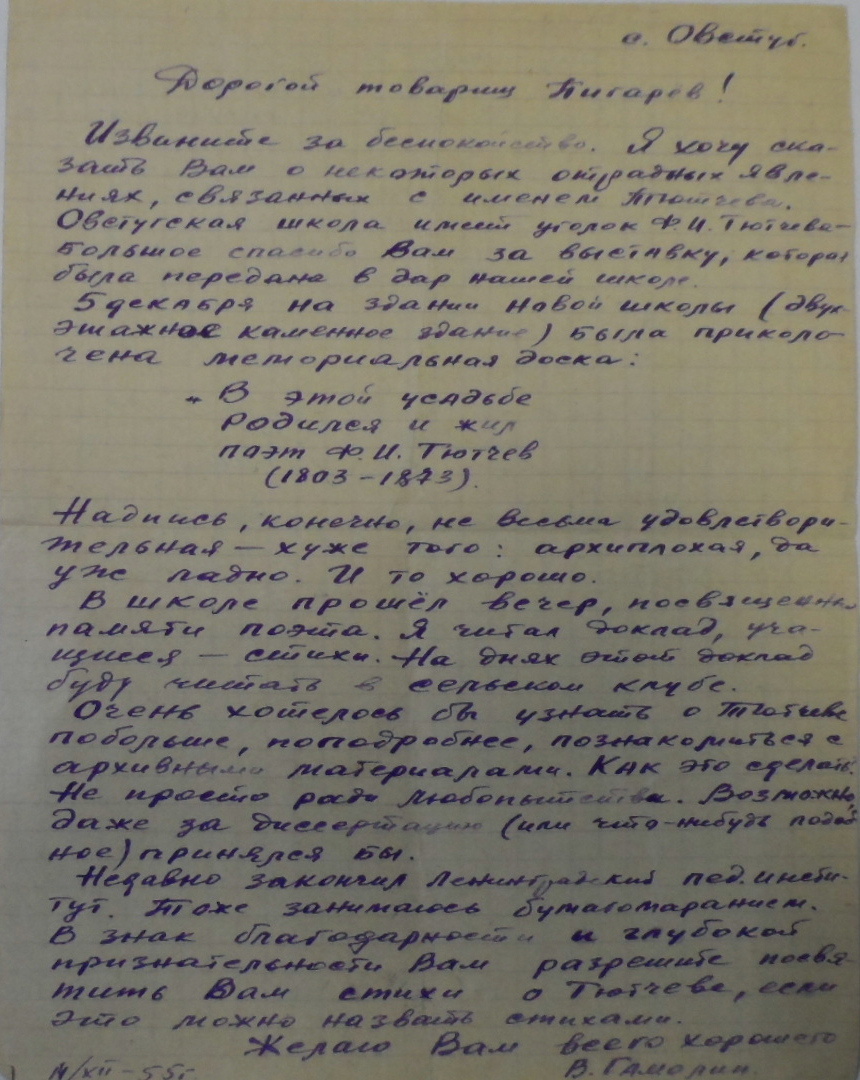 с. Овстуг.
Дорогой товарищ Пигарев!
Извините за беспокойство. Я хочу ска-
зать Вам о некоторых отрадных явле-
ниях, связанных с именем Тютчева.
Овстугская школа имеет уголок Ф.И. Тютчева-
Большое спасибо Вам за выставку, которая
была передана в дар нашей школе.
5 декабря на здании новой школы (двух-
этажное каменное здание) была приколо-
чена мемориальная доска:
„В этой усадьбе
родился и жил
поэт Ф.И. Тютчев
(1803-1873).
Надпись, конечно, не весьма удовлетвори-
тельная — хуже того: архиплохая, да
уж ладно. И то хорошо.
В школе прошёл вечер, посвященный
памяти поэта. Я читал доклад, уча-
щиеся — стихи. На днях этот доклад
буду читать в сельском клубе.
Очень хотелось бы узнать о Тютчеве
побольше, поподробнее, познакомиться с
архивными материалами. Как это сделать?
Не просто ради любопытства. Возможно,
даже за диссертацию (или что-нибудь подоб-
ное) принялся бы.
Недавно закончил Ленинградский пед. инсти-
тут. Тоже занимаюсь бумагомаранием.
В знак благодарности и глубокой
признательности Вам разрешите посвя-
тить Вам стихи о Тютчеве, если
это можно назвать стихами.
Желаю Вам всего хорошего
В. Гамолин.
14/XII-55г